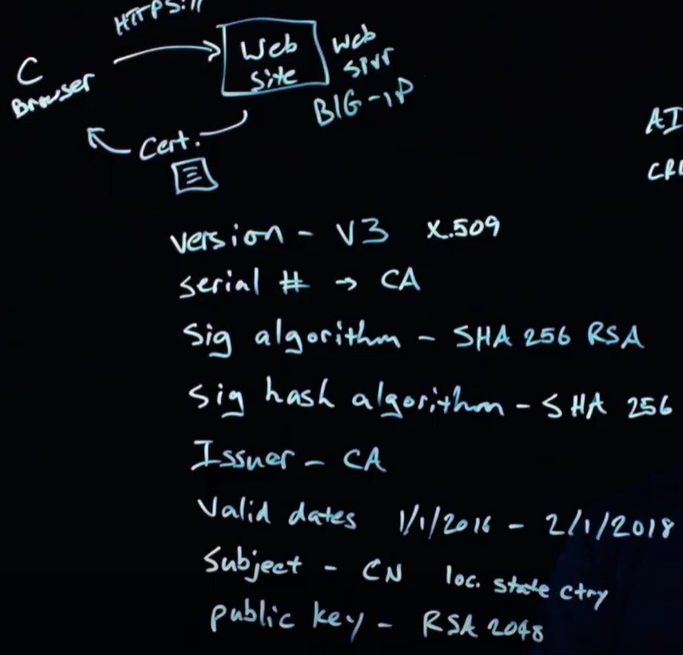 HTTPS://
C
Browser
Web
Site
Web
srvr
BIG-IP
Cert.
AI
CRL
version - V3 X.509
serial # → CA
Sig algorithm - SHA 256 RSA
Sig hash algorithm - SHA 256
Issuer - CA
Valid dates 1/1/2016 - 2/1/2018
Subject - CN loc. state ctry
public key - RSA 2048